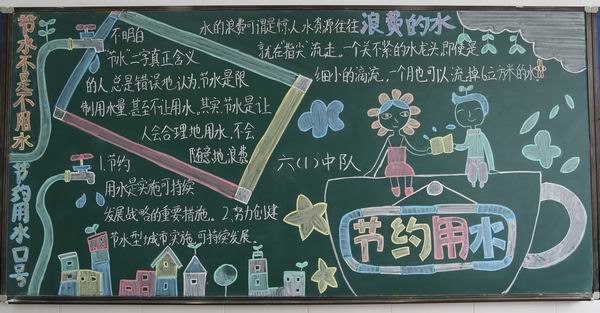 节水不是不用水
节约用水口号
不明白
节水”二字真正含义
的人总是错误地认为节水是限
制用水量,甚至不让用水。其实节水是让
人会合理地用水,不会
随意地浪费
1.节约
用水是实施可持续
发展战略的重要措施。2.努力创建
节水型城市实施可持续发展。
浪费的水
水的浪费可谓是惊人水资源往往
就在“指尖”流走。一个关不紧的水龙头,即使是
细小的滴流,一个月也可以流掉6立方米的水
六(1)中队
节约用水